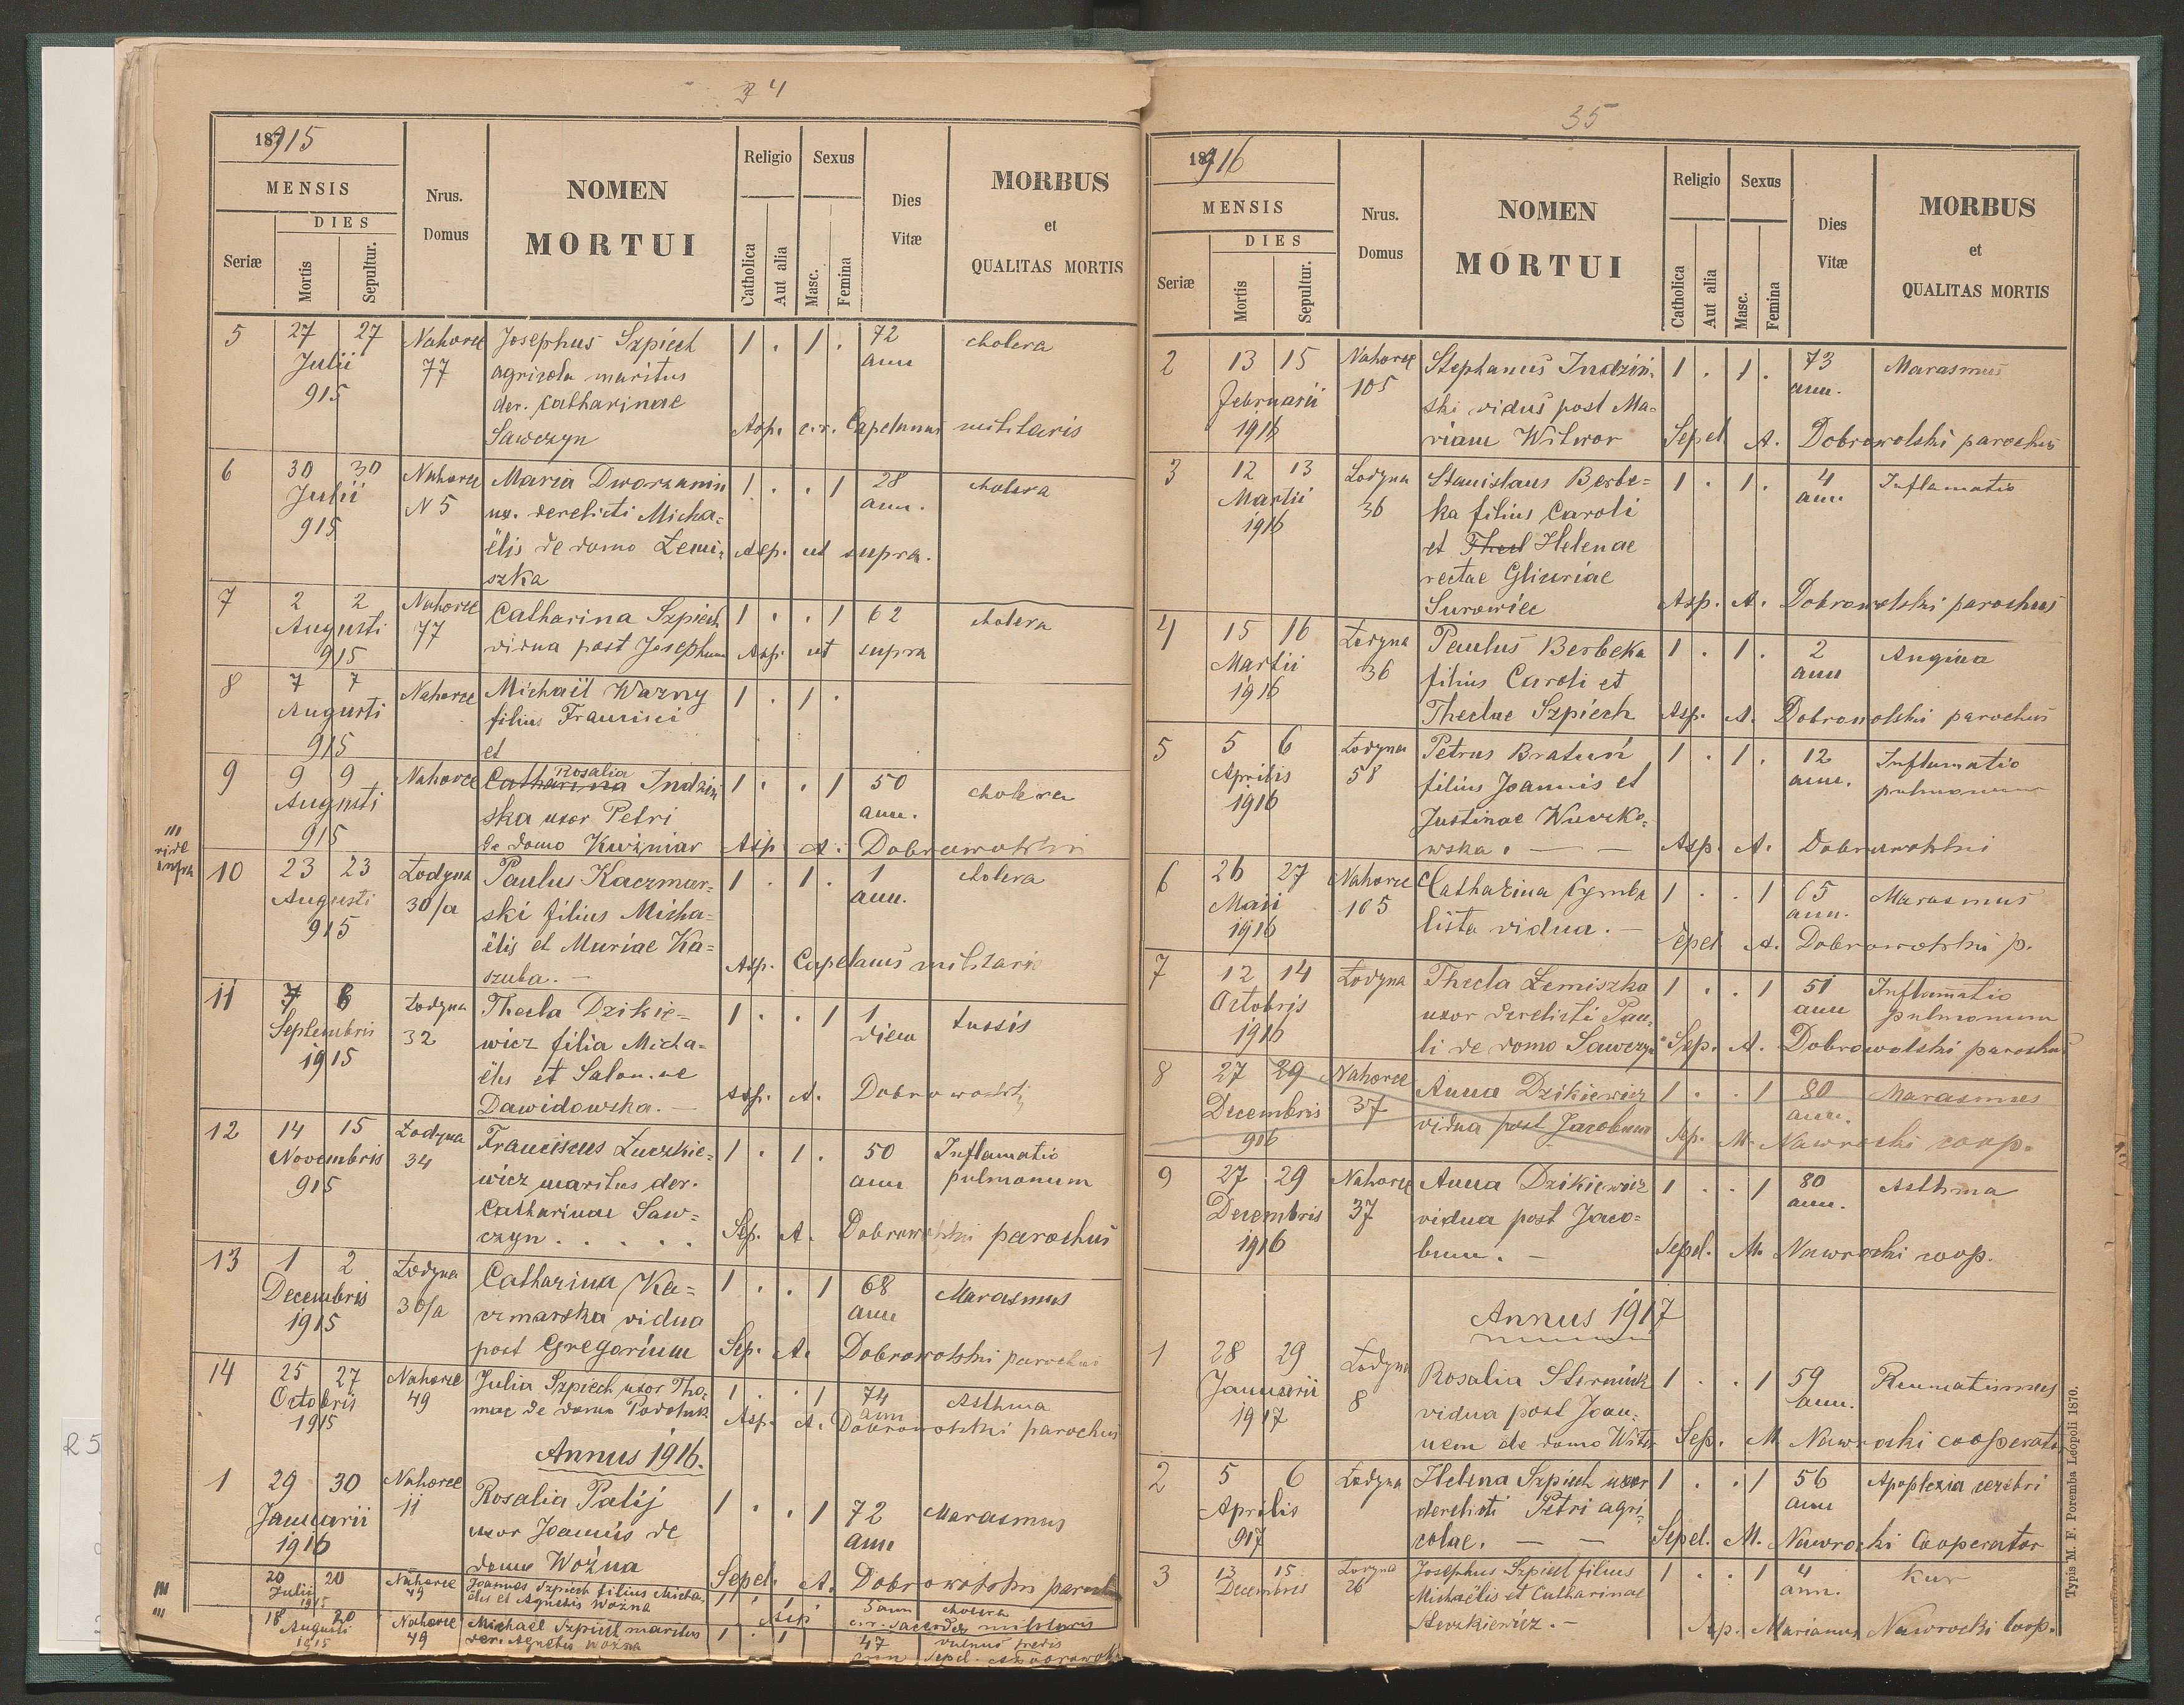 34
187915
MENSIS
DIES
Seriæ
Mortis
Sepultur.
Nrus.
Domus
NOMEN
MORTUI
Religio
Catholica
Aut alia
Sexus
Masc.
Femina
Dies
Vitæ
MORBUS
et
QUALITAS MORTIS
5 27 27 Nahorce Josephus Szpiech 1 . 1 . 72 cholera
Julii 77 agricola maritus ann
915 der. Catharinae
Sawczyn Asp. c.r. Capelanus militaris
6 30 30 Nahorce Maria Dworzanin 1 . . 1 28 cholera
Julii N 5 ux. derelicti Micha= ann.
915 ëlis de domo Łemi= Asp. ut supra.
szka
7 2 2 Nahorce Catharina Szpiech 1 . . 1 62 cholera
Augusti 77 vidua post Josephum Asp. ut supra
915
8 7 7 Nahorce Michaël Wazny 1 . 1 .
Augusti filius Francisci
915 et
9 9 9 Nahorce Catharina Rosalia Indziń 1 . . 1 50 cholera
Augusti ska uxor Petri ann.
915 de domo Kuźniar Asp. A. Dobrowolski
III
vide
infra
10 23 23 Łodyna Paulus Kaczmar= 1 . 1 . 1 cholera
Augusti 30/a ski filius Micha= ann.
915 ëlis et Mariae Ka=
szuba. — Asp. Capelanus militaris
11 7 8 Łodyna Thecla Dzikie= 1 . . 1 1 tussis
Septembris 32 wicz filia Micha= diem
1915 ëlis et Salomae
Dawidowska. — Asp. A. Dobrowolski
12 14 15 Łodyna Franciscus Łuczkie= 1 . 1 . 50 Inflamatio
Novembris 34 wicz maritus der. ann pulmonum
915 Catharinae Saw=
czyn . . . . . Sep. A. Dobrowolski parochus
13 1 2 Łodyna Catharina Ka= 1 . . 1 68 Marasmus
Decembris 30/a czmarska vidua ann
1915 post Gregorium Sep. A. Dobrowolski parochus
14 25 27 Nahorce Julia Szpiech uxor Tho= 1 . . 1 74 Asthma
Octobris 49 mae de domo Asp. A. ann Dobrowolski parochus
1915
Annus 1916.
1 29 30 Nahorce Rosalia Palij 1 . . 1 72 Marasmus
Januarii 11 uxor Joannis de ann
1916 domo Woźna Sepel. A. Dobrowolski paroch
III 20 20 Nahorce Joannes Szpiech filius Micha= 1 . 1 . 5 ann cholera
Julii 49 ëlis et Agnetis Woźna Asp c.r. sacerdos militaris
1915
III 18 20 Nahorce Michaël Szpiech maritus 1 . 1 47 vulnus
Augusti 49 der. Agnetis Woźna ann Sepel. A. Dobrowols
1915
35
187916
MENSIS
DIES
Seriæ
Mortis
Sepultur.
Nrus.
Domus
NOMEN
MORTUI
Religio
Catholica
Aut alia
Sexus
Masc.
Femina
Dies
Vitæ
MORBUS
et
QUALITAS MORTIS
2 13 15 Nahorce Stephanus Indziń= 1 . 1 . 73 Marasmus
Februarii 105 ski vidus post Ma= ann.
1916 riam Witwor Sepel A. Dobrowolski parochus
3 12 13 Łodyna Stanislaus Berbe= 1 . 1 . 4 Inflamatio
Martii 36 ka filius Caroli ann.
1916 et Thecl Helenae
rectae Gliceriae
Surowiec Asp. A. Dobrowolski parochus
4 15 16 Łodyna Paulus Berbeka 1 . 1 . 2 Angina
Martii 36 filius Caroli et ann
1916 Theclae Szpiech Asp. A. Dobrowolski parochus
5 5 6 Łodyna Petrus Bratuń 1 . 1 . 12 Inflamatio
Aprilis 58 filius Joannis et ann. pulmonum
1916 Justinae Wuczko=
wska. — — Asp. A. Dobrowolski
6 26 27 Nahorce Catharina Cymba 1 . . 1 65 Marasmus
Maii 105 lista vidua. — ann.
1916 Sepel A. Dobrowolski p.
7 12 14 Łodyna Thecla Łemiszka 1 . . 1 51 Inflamatio
Octobris uxor derelicti Pau= ann pulmonum
1916 li de domo Sawczyn Sep. A. Dobrowolski parochus
8 27 29 Nahorce Anna Dzikiewicz 1 . . 1 80 Marasmus
Decembris 37 vidua post Jacobum ann.
916 Sep. M. Nawrocki coop.
9 27 29 Nahorce Anna Dzikiewicz 1 . . 1 80 Asthma
Decembris 37 vidua post Jaco= ann.
1916 bum. — Sepel. M. Nawrocki coop.
Annus 1917
1 28 29 Łodyna Rosalia Sterniuk 1 . . 1 59 Reumatismus
Januarii 8 vidua post Joan= ann.
1917 nem de domo Witw Sep. M. Nawrocki cooperator
2 5 6 Łodyna Helena Szpiech uxor 1 . . 1 56 Apoplexia cerebri
Aprilis derelicti Petri agri= ann
917 colae. — — Sepel. M. Nawrocki Cooperator
3 13 15 Łodyna Josephus Szpiech filius 1 . . 1 4 Kur
Decembris 26 Michaëlis et Catharinae ann.
Łuczkiewicz. — Asp. Marianus Nawrocki Coop.
Typis M. F. Poremba Leopoli 1870.
25